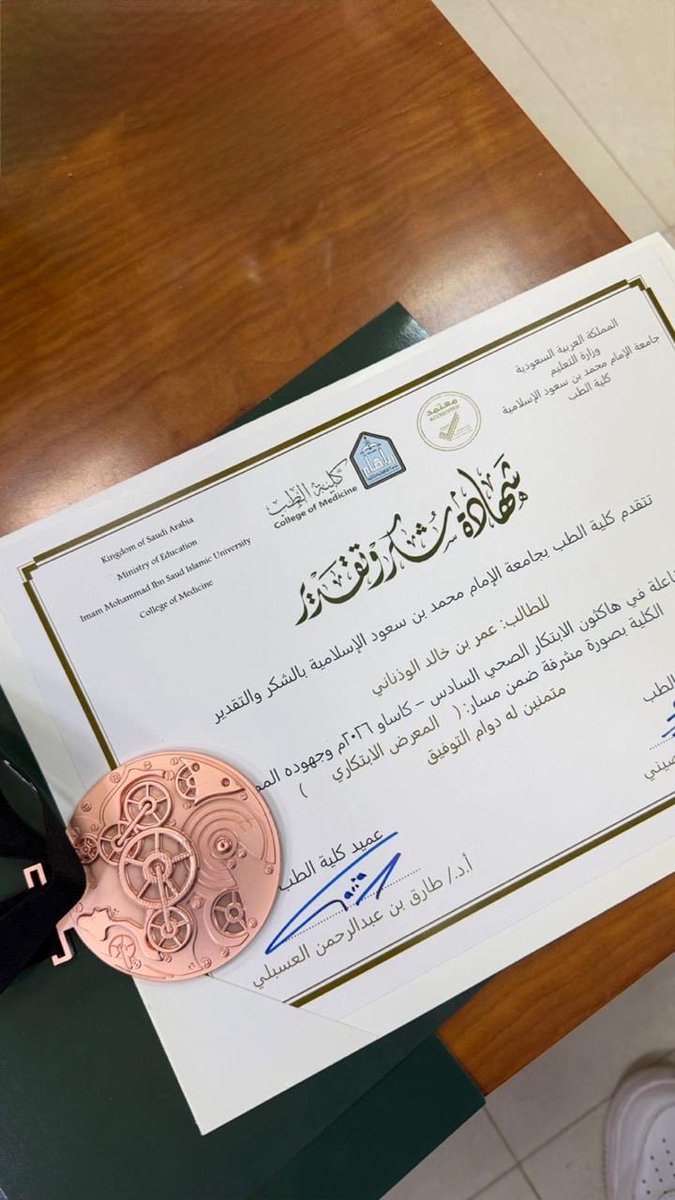 المملكة العربية السعودية
وزارة التعليم
جامعة الإمام محمد بن سعود الإسلامية
كلية الطب
معتمد
ACCREDITED
كلية الطب
College of Medicine
Kingdom of Saudi Arabia
Ministry of Education
Imam Mohammad Ibn Saud Islamic University
College of Medicine
شهادة شكر وتقدير
تتقدم كلية الطب بجامعة الإمام محمد بن سعود الإسلامية بالشكر والتقدير
للطالب: عمر بن خالد الوذناني
في هاكثون الابتكار الصحي السادس – كاساو ٢٠٢٦م وجهوده
الكلية بصورة مشرفة ضمن مسار: ( المعرض الابتكاري )
متمنين له دوام التوفيق
الطب
عميد كلية الطب
أ.د/ طارق بن عبدالرحمن العسبلي